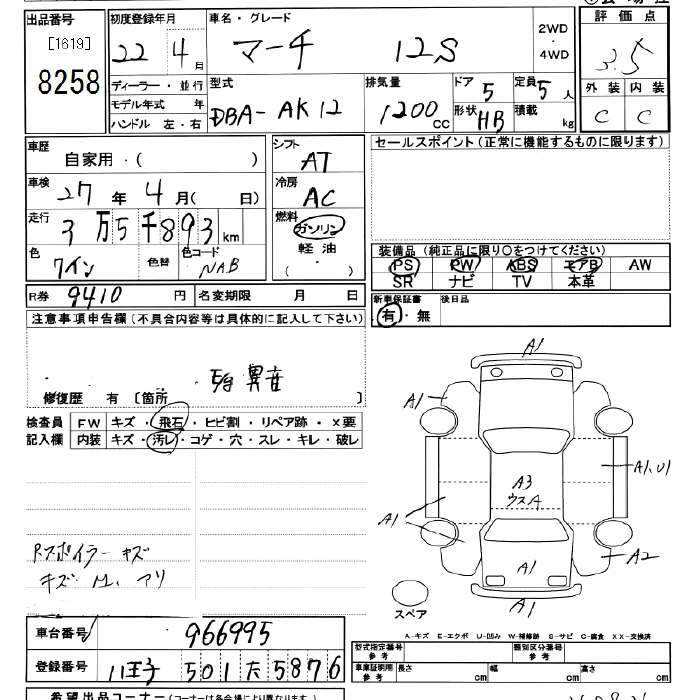 出品番号 初度登録年月 車名・グレード 2WD・4WD 評価点
[1619] 22 4月 マーチ 12S 3.5
8258 ディーラー・並行 型式 排気量 ドア 5 定員 5人 外装 内装
モデル年式 年 DBA-AK12 1200cc 形状 HB 積載 kg C C
ハンドル 左・右
車歴 シフト セールスポイント(正常に機能するものに限ります)
自家用・( ) AT
車検 冷房
27年 4月( 日) AC
走行 燃料
3万5千893km ガンリン
色 色替 色コード 軽油 装備品(純正品に限り○をつけてください)
ワイン NAB ( ) PS PW ABS エアB AW
SR ナビ TV 本革
R券 9410円 名変期限 月 日 新車保証書 後日品
注意事項申告欄(不具合内容等は具体的に記入して下さい) 有・無
異音
修復歴 有〔箇所 〕
検査員 FW キズ・飛石・ヒビ割・リペア跡・×要
記入欄 内装 キズ・汚レ・コゲ・穴・スレ・キレ・破レ
A1
A1
A1,U1
A3
ウスA
A1
A2
A1
A1
スペア
Rスポイラー キズ
キズ
車台番号 966995
登録番号 八王子 501 た 5876
A-キズ E-エクボ U-凹み W-補修跡 S-サビ C-腐食 XX-交換済
型式指定番号 参考 類別区分番号 参考
車庫証明用 参考 長さ 幅 高さ cm
希望出品コーナー(コーナーは各会場により異なります)